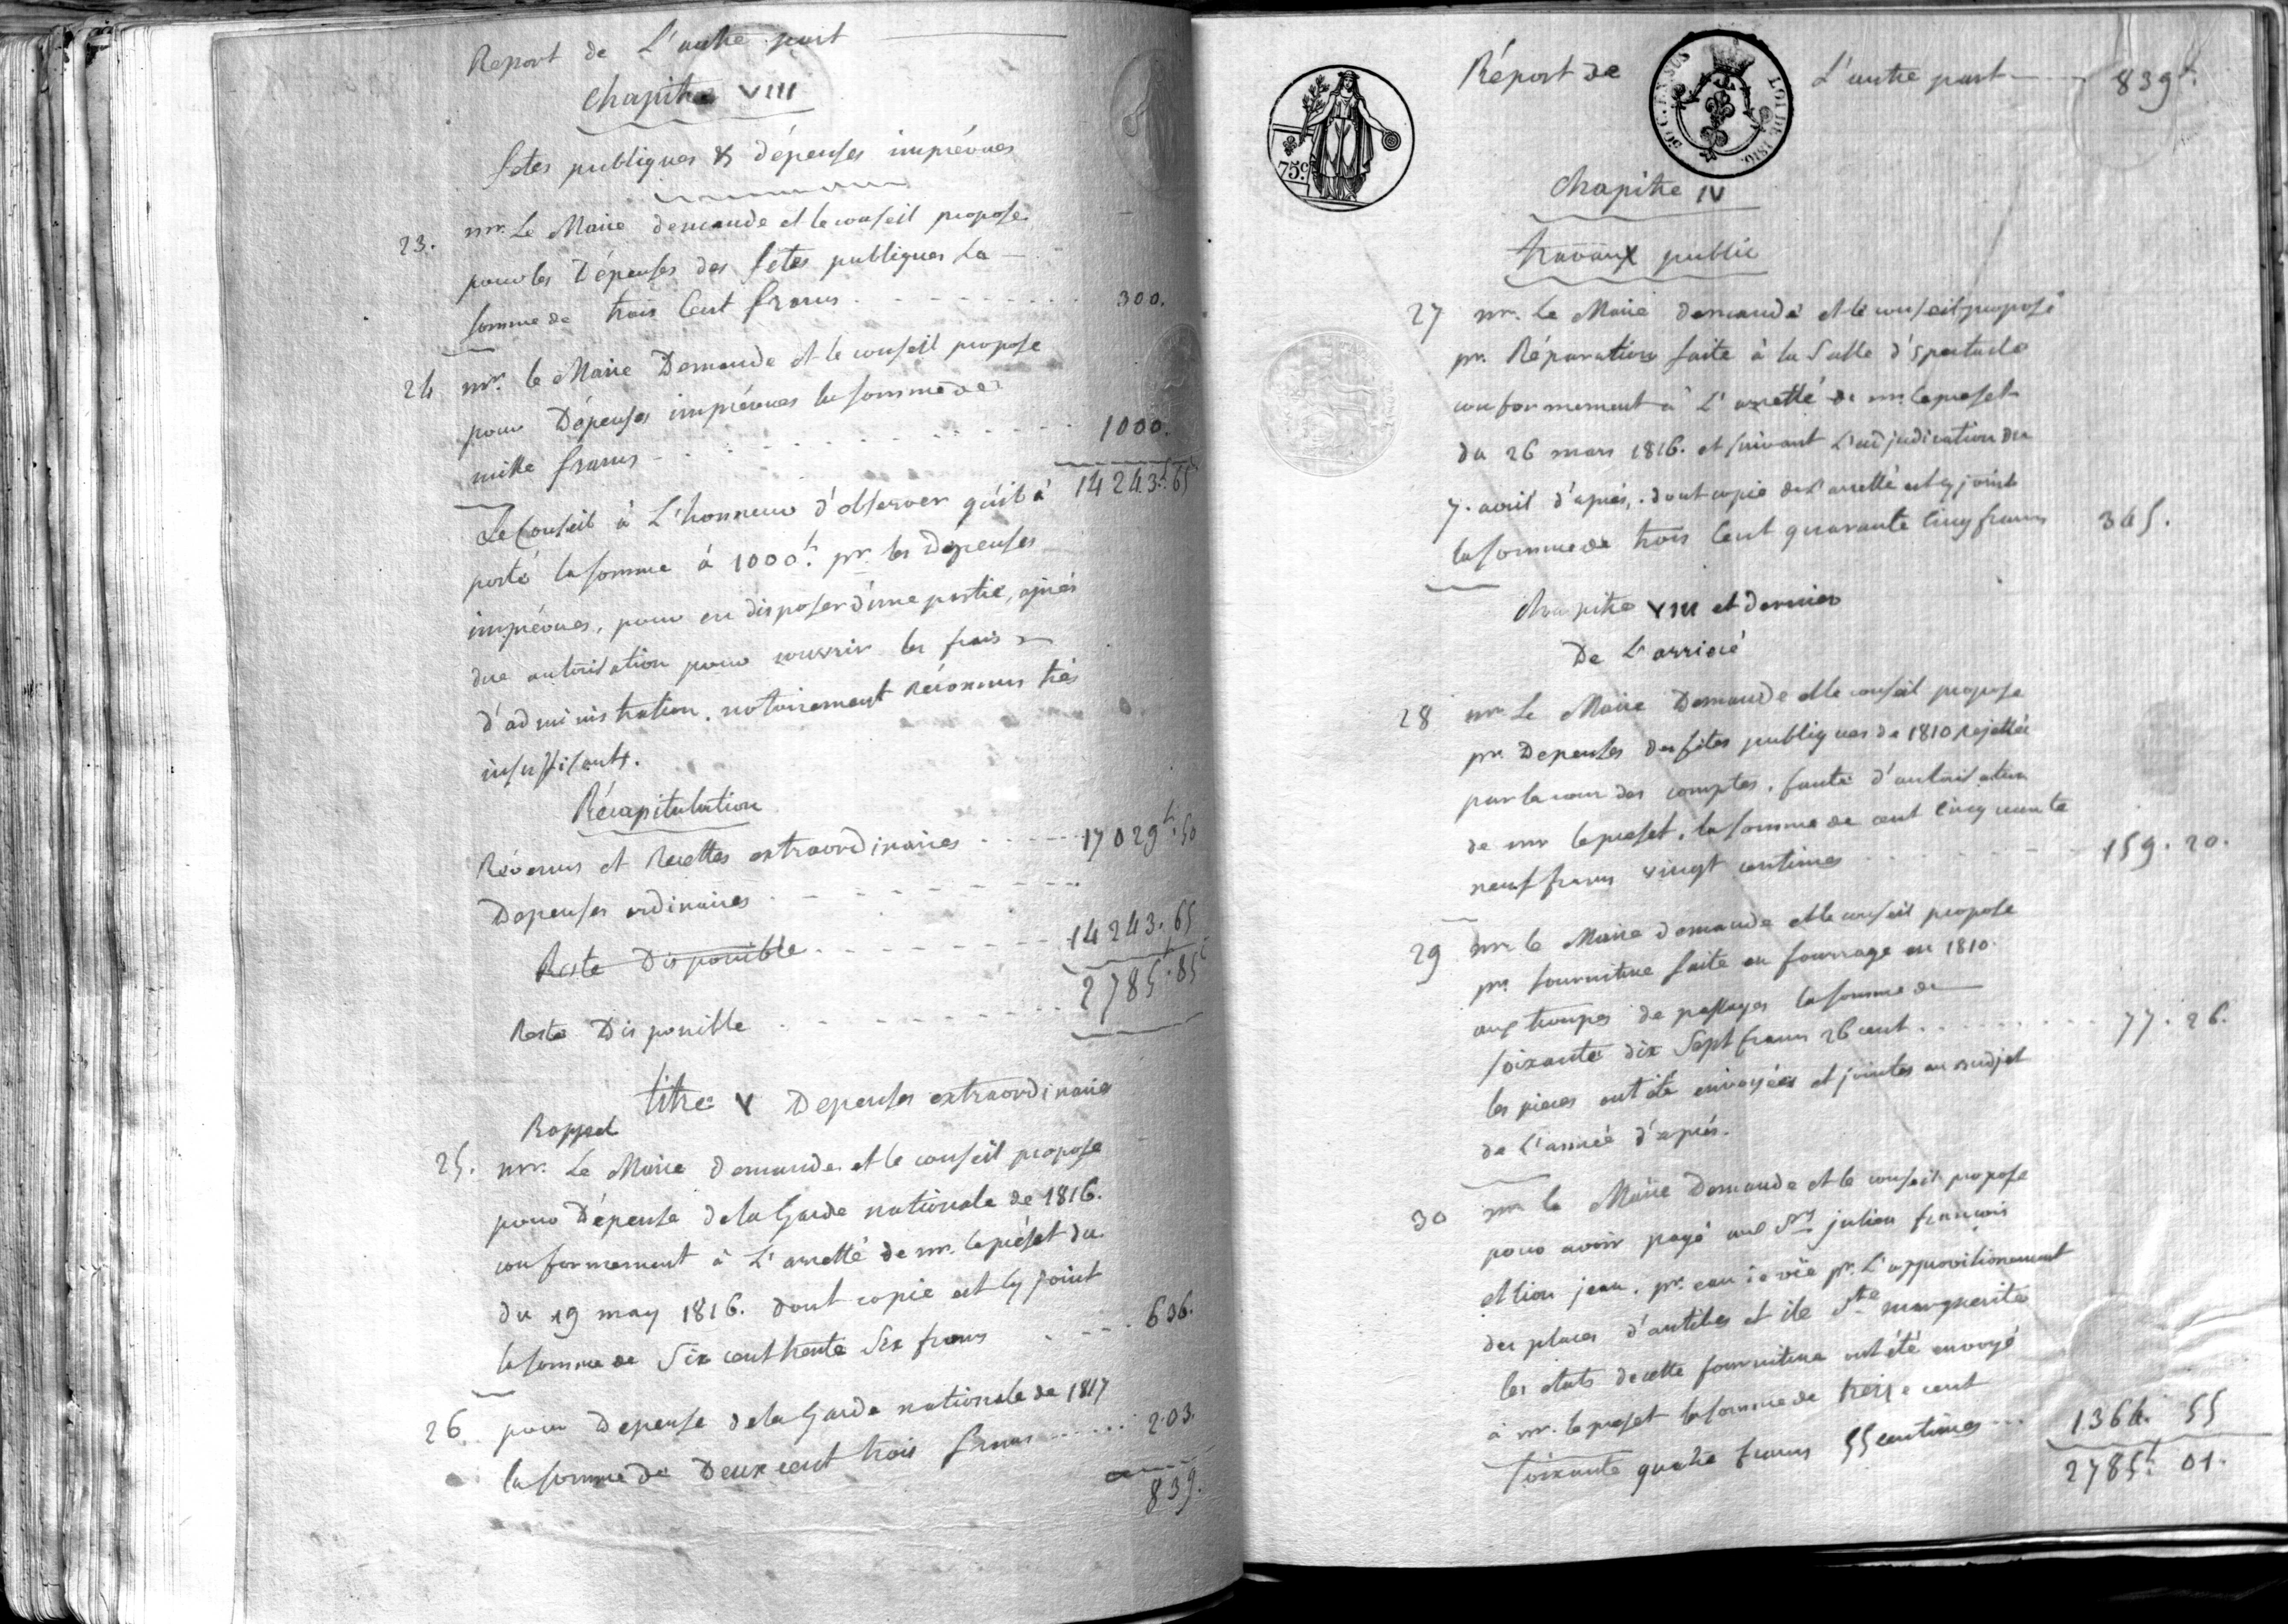 Report de L'autre part
Chapitre VIII
fetes publiques & dépenses imprévues
23. mr. Le Maire demande et le conseil propose
pour les Dépenses des fetes publiques La
somme de trois Cent francs 300.
24 mr. le Maire Demande et le conseil propose
pour Dépenses imprévues la somme de
mille francs 1000.
14243.f 65
Le Conseil à L'honneur d'observer qu'il à
porté la somme à 1000.f pr. les Depenses
imprévues, pour en disposer d'une partie, après
due autorisation pour couvrir les frais
d'administration, notoirement réconnus très
insuffisants.
Récapitulation
Révenus et Recettes extraordinaires 17029f. 50
Depenses ordinaires
Reste Disponible 14243. 65
2785f. 85c
Reste Disponible
titre V Depenses extraordinaires
Rappel
25. mr. Le Maire demande et le conseil propose
pour Dépense de la Garde nationale de 1816.
conformement à L'arretté de mr. le préfet du
du 19 may 1816. dont copie est cy joint
la somme de Six cent trente Six francs 636.
26. pour Depense de la Garde nationale de 1817
la somme de Deux cent trois francs 203.
839.
Réport de L'autre part 839f.
30 C. EN SUS
LOI DE 1816.
75c.
Chapitre IV
travaux public
27 mr. Le Maire demande et le conseil propose
pr. Réparation faite à la Salle d'Spectacle
conformement à L'arretté de mr. le prefet
du 26 mars 1816. et suivant L'adjudication du
7. avril d'après, dont copie de L'arretté est cy jointe
la somme de trois Cent quarante Cinq francs 345.
Chapitre VIII et dernier
De L'arrieré
28 mr. Le Maire Demande et le conseil propose
pr. Depenses des fetes publiques de 1810 rejettée
par la cour des comptes, faute d'autorisation
de mr le prefet, la somme de cent Cinquante
neuf francs vingt centimes 159. 20.
29 mr. le Maire demande et le conseil propose
pr. fourniture faite en fourrage en 1810.
aux troupes de passages la somme de
soixante dix Sept francs 26 cent 77. 26.
les pieces ont été envoyées et jointes au budjet
de L'année d'après.
30 mr. le Maire Demande et le conseil propose
pour avoir payé aux Srs julien francois
et lion jean, pr. eau de vie pr. L'approvitionement
des places d'antibes et ile Ste marguerite
les etats de cette fourniture ont été envoyé
à mr. le prefet la somme de treize cent
soixante quatre francs 55 centimes 1364. 55
2785f. 01.